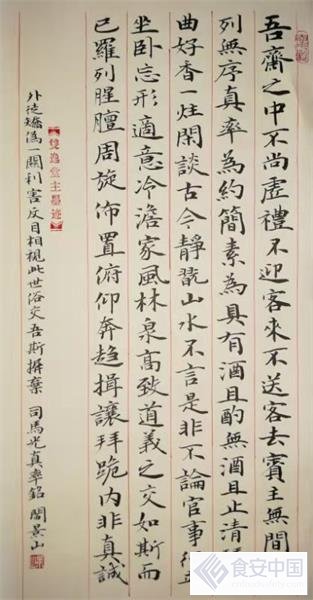 吾齋之中不尚虛禮不迎客來不送客去賓主無間
列無序真率為約簡素為具有酒且酌無酒且止清
曲好香一炷閑談古今靜翫山水不言是非不論官事行立
坐卧忘形適意冷澹家風林泉高致道義之交如斯而
已羅列腥膻周旋佈置俯仰奔趨揖讓拜跪內非真誠
雙逸堂主墨迹
外徒矯偽一關利害反目相視此世俗交吾斯摒棄 司馬光真率銘 閻景山
食安中国